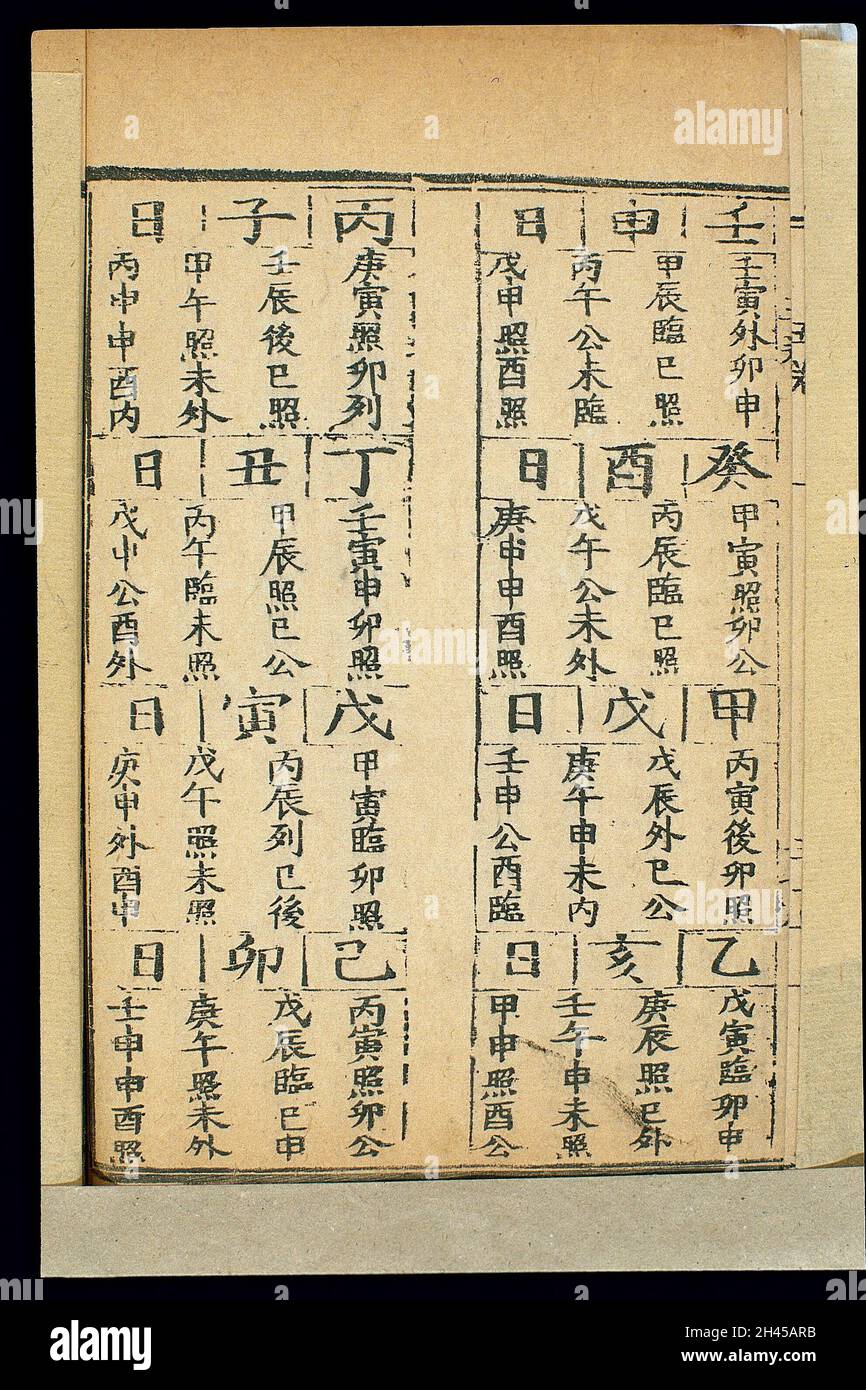 壬申日
壬寅外卯申
甲辰臨巳照
丙午公未臨
戊申照酉照
癸酉日
甲寅照卯公
丙辰臨巳照
戊午公未外
庚申申酉照
甲戊日
丙寅後卯照
戊辰外巳公
庚午申未内
壬申公酉臨
乙亥日
戊寅臨卯申
庚辰照巳外
壬午申未照
甲申照酉公
丙子日
庚寅照卯列
壬辰後巳照
甲午照未外
丙申申酉内
丁丑日
壬寅申卯照
甲辰照巳公
丙午臨未照
戊申公酉外
戊寅日
甲寅臨卯照
丙辰列巳後
戊午照未照
庚申外酉申
己卯日
丙寅照卯公
戊辰臨巳申
庚午照未外
壬申申酉照
alamy
Image ID: 2H45ARB
www.alamy.com